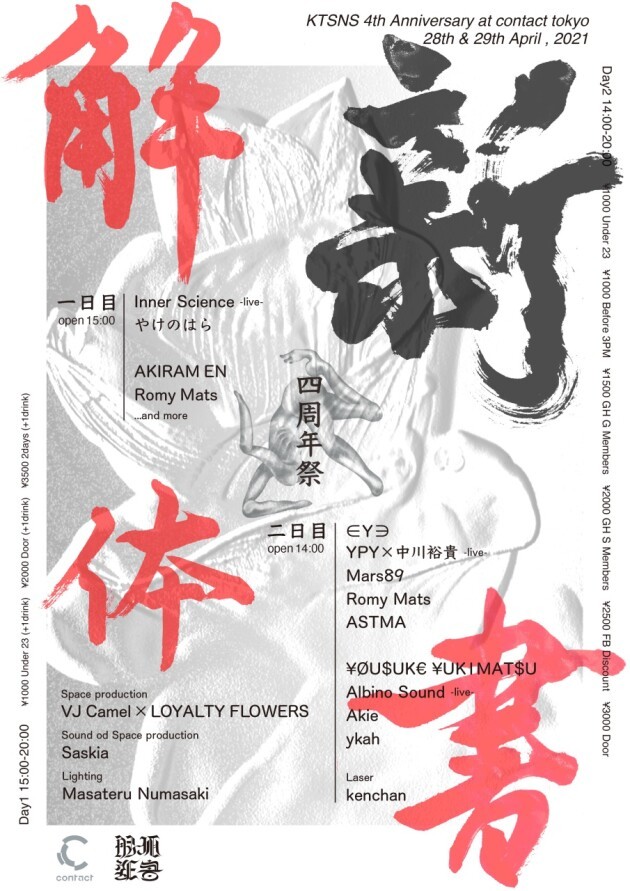 KTSNS 4th Anniversary at contact tokyo
28th & 29th April , 2021
解体新書
一日目
open 15:00
Inner Science -live-
やけのはら
AKIRAM EN
Romy Mats
...and more
四周年祭
二日目
open 14:00
∈Y∋
YPY×中川裕貴 -live-
Mars89
Romy Mats
ASTMA
¥ØU$UK€ ¥UK1MAT$U
Albino Sound -live-
Akie
ykah
Laser
kenchan
Space production
VJ Camel × LOYALTY FLOWERS
Sound od Space production
Saskia
Lighting
Masateru Numasaki
Day1 15:00-20:00 ¥1000 Under 23 (+1drink) ¥2000 Door (+1drink) ¥3500 2days (+1drink)
Day2 14:00-20:00 ¥1000 Under 23 ¥1000 Before 3PM ¥1500 GH G Members ¥2000 GH S Members ¥2500 FB Discount ¥3000 Door
contact